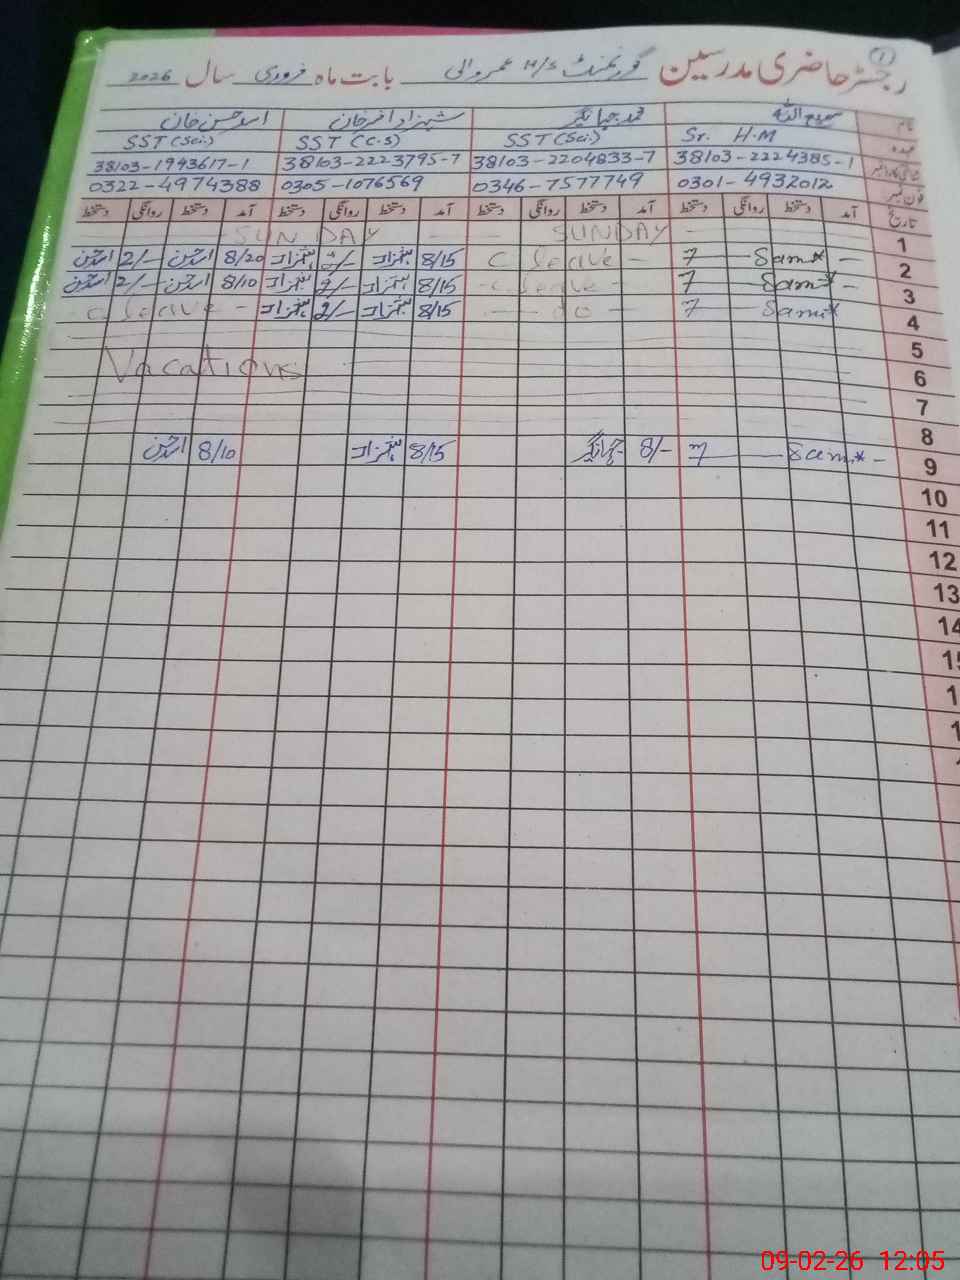 ①
رجسٹر حاضری مدرسین گورنمنٹ H/S عمروالی بابت ماہ فروری سال 2026
نام سمیع اللہ محمد جہانگیر شہزاد افسر خان اسد حسن خان
عہدہ Sr. H.M SST (Sci.) SST (C.S) SST (Sci.)
شناختی کارڈ نمبر 38103-2224385-1 38103-2204833-7 38103-2223795-7 38103-1993617-1
فون نمبر 0301-4932012 0346-7577749 0305-1076569 0322-4974388
تاریخ آمد دستخط روانگی دستخط آمد دستخط روانگی دستخط آمد دستخط روانگی دستخط آمد دستخط روانگی دستخط
1 SUNDAY SUNDAY
2 7 C leave 8/15 شہزاد 2/- شہزاد 8/20 2/-
3 7 C leave 8/15 شہزاد 2/- شہزاد 8/10 2/-
4 7 do 8/15 شہزاد 2/- شہزاد C leave
5
6 Vacations
7
8
9 7 8/- 8/15 شہزاد 8/10
10
11
12
13
14
15
09-02-26 12:05